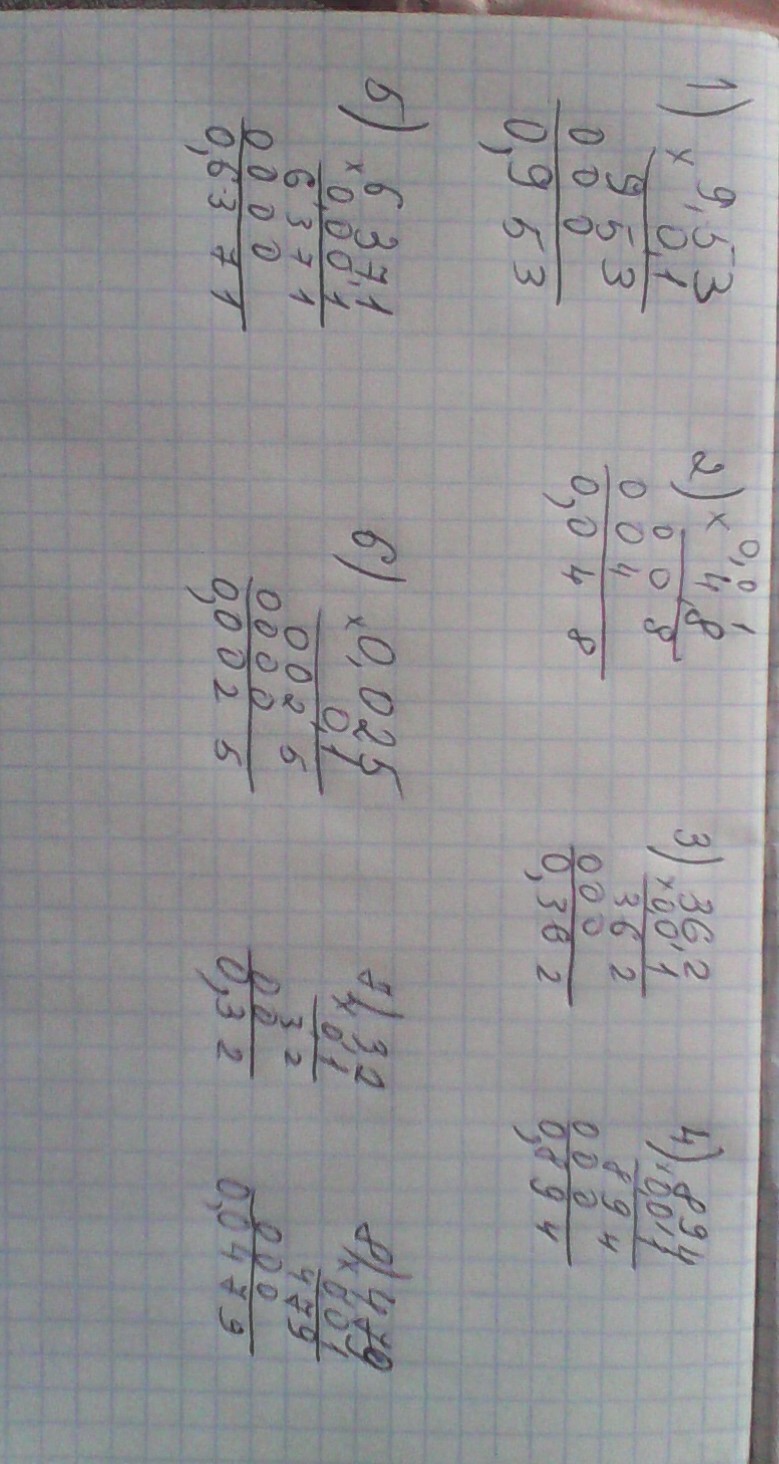 1) 9,53
× 0,1
953
000
0,953
2) 0,01
× 4,8
008
004
0,048
3) 36,2
× 0,01
362
000
0,362
4) 894
× 0,01
894
000
0,894
5) 6371
× 0,001
6371
0000
0,6371
6) 0,025
× 0,1
0025
0000
0,0025
7) 32
× 0,1
32
00
0,32
8) 4,79
× 0,01
479
000
0,0479